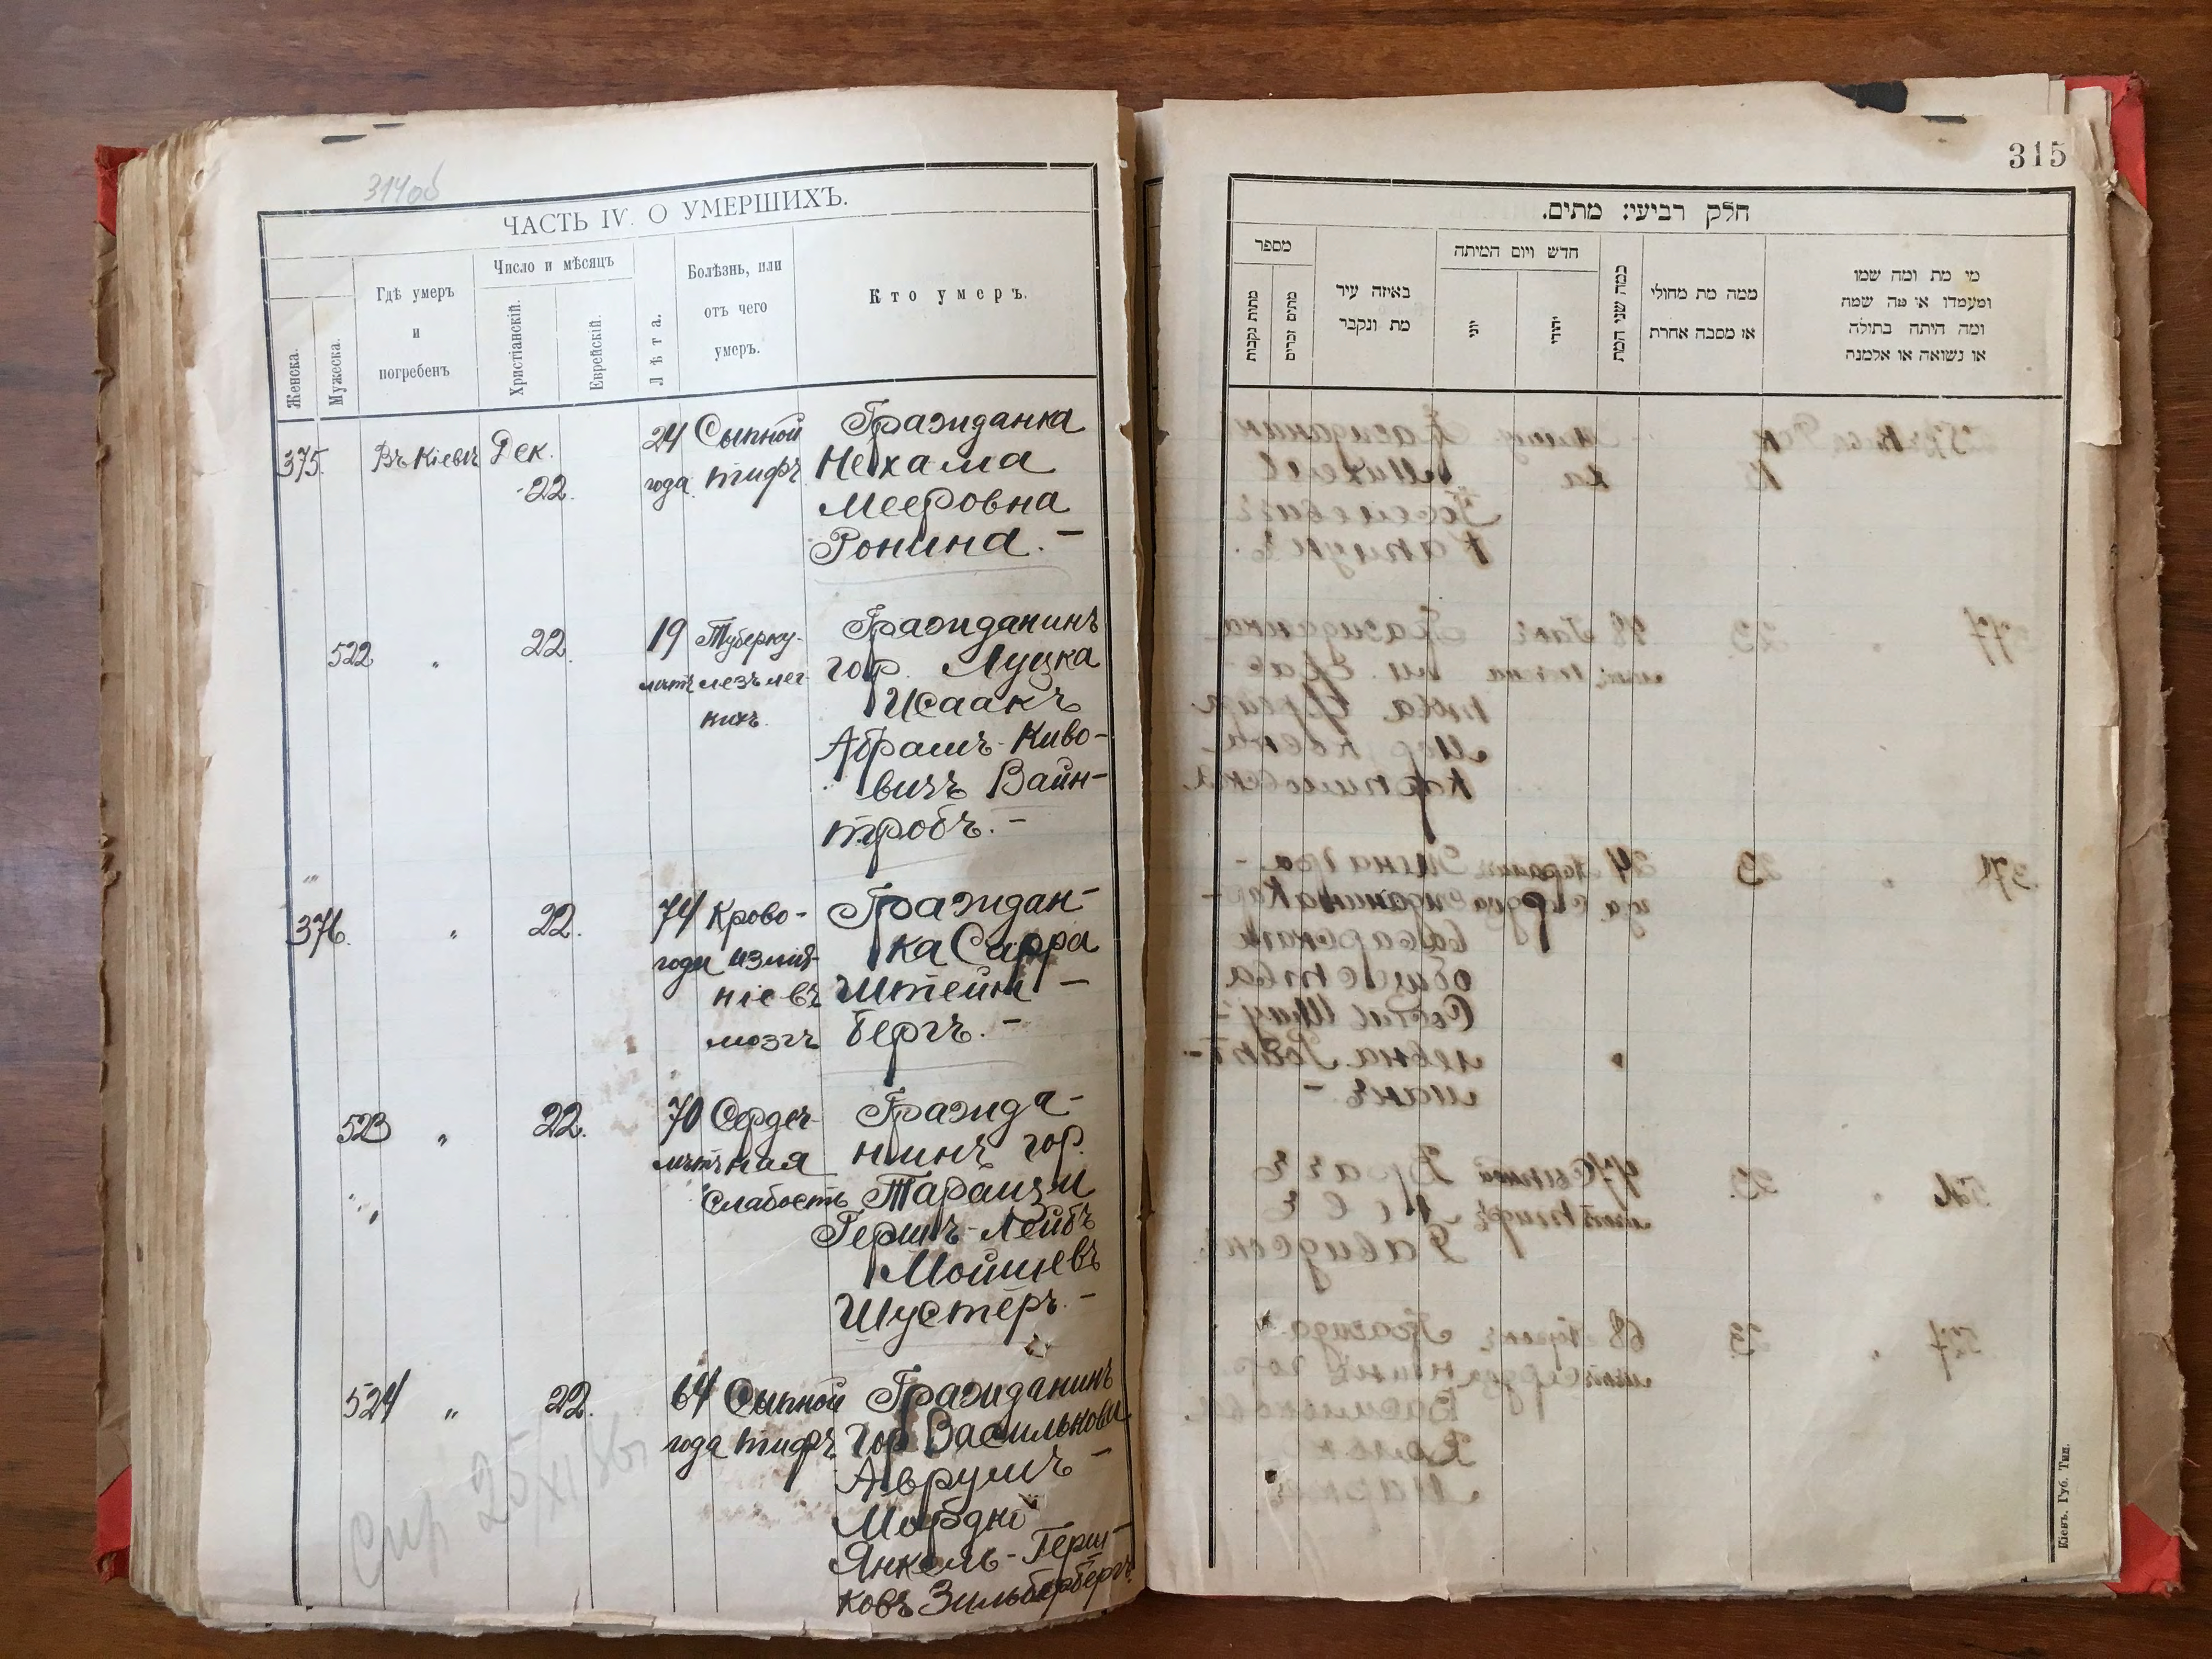 314об
ЧАСТЬ IV. О УМЕРШИХЪ.
Женска.
Мужеска.
Гдѣ умеръ
и
погребенъ
Число и мѣсяцъ
Христіанскій.
Еврейскій.
Лѣта.
Болѣзнь, или
отъ чего
умеръ.
Кто умеръ.
375. Въ Кіевѣ Дек. 24 Сыпной Гражданка
22. года тифъ Нехама
Мееровна
Ронина. —
522 „ 22. 19 Туберку- Гражданинъ
лѣтъ лезъ лег- гор. Луцка
кихъ. Исаакъ
Абрамъ-Киво-
вичъ Вайн-
тробъ. —
376. „ 22. 74 Крово- Граждан-
года изліяніе ка Сарра
въ Штейн-
мозгъ берга. —
523 „ 22. 70 Сердеч- Гражда-
лѣтъ ная нинъ гор.
слабость Таращи
Гершъ-Лейбъ
Мошшевъ
Шустеръ. —
524 „ 22. 64 Сыпной Гражданинъ
года тифъ гор Васильков
Аврумъ-
Мордко
Янкель-Герш-
ковъ Зильбербергъ.
315
חלק רביעי: מתים.
מספר
מתות נקבות
מתים זכרים
באיזה עיר
מת ונקבר
חדש ויום המיתה
יוני
יהודי
כמה שני המת
ממה מת מחולי
או מסבה אחרת
מי מת ומה שמו
ומעמדו או מה שמה
ומה היתה בתולה
או נשואה או אלמנה
Кіевъ. Губ. Тип.